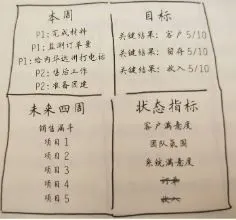 本周
P1:完成材料
P1:监测订单量
P1:给内华达州打电话
P2:售后工作
P2:准备团建
目标
关键结果:客户5/10
关键结果:留存5/10
关键结果:收入5/10
未来四周
销售漏斗
项目1
项目2
项目3
项目4
项目5
状态指标
客户满意度
团队氛围
系统满意度
订单
收入